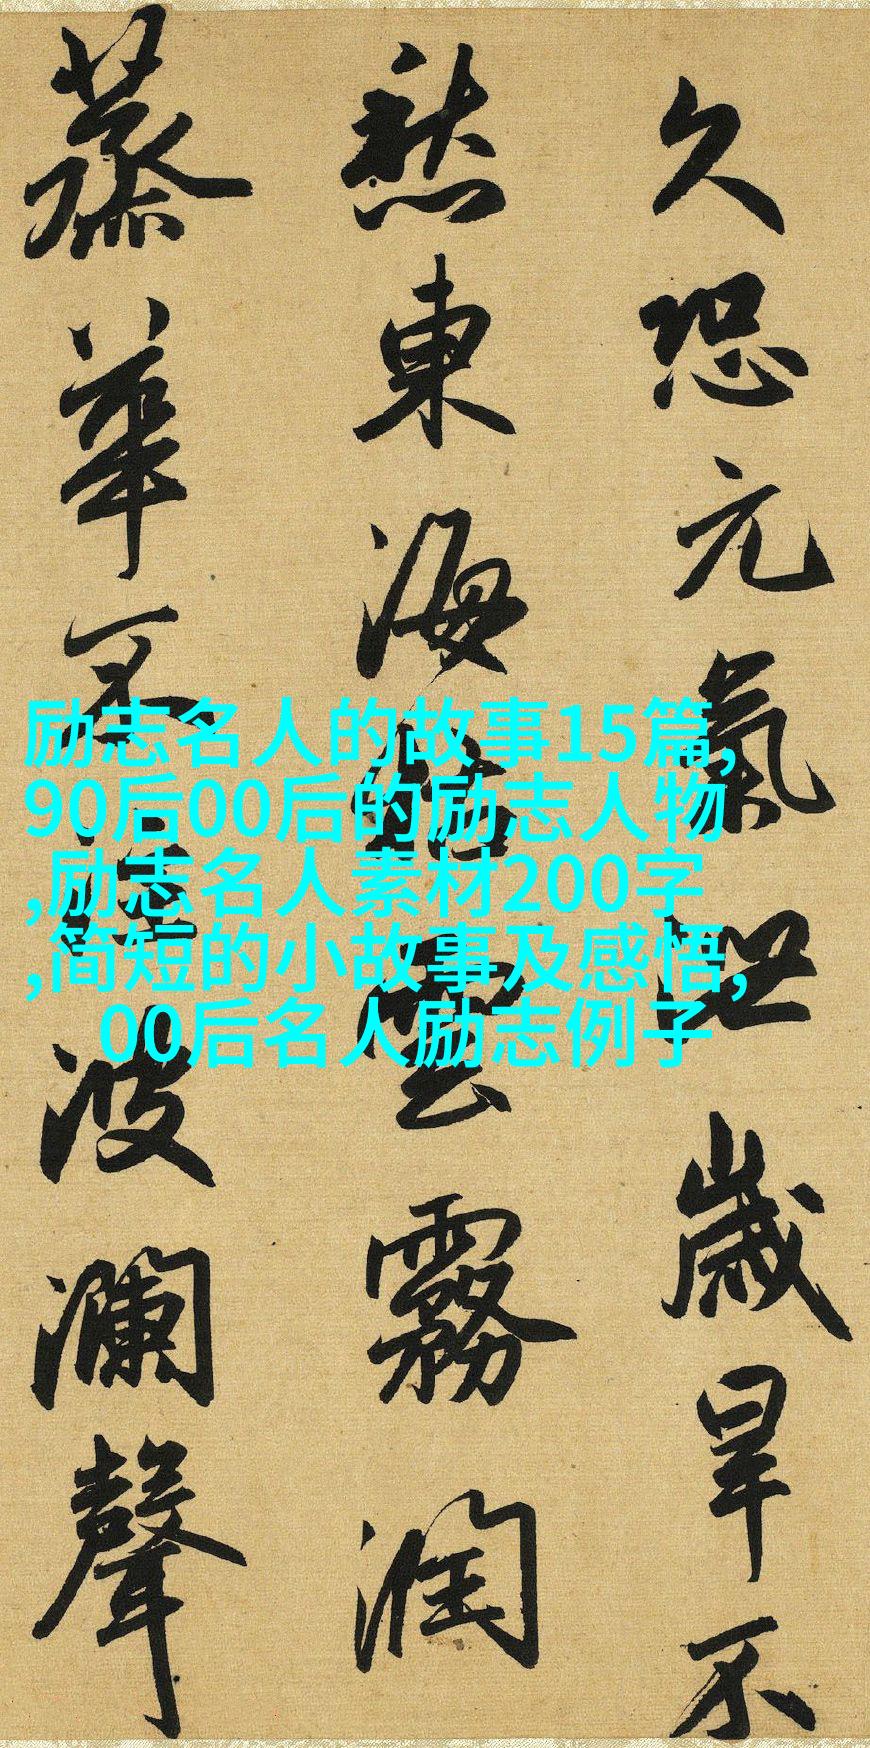 久恐元氣泄歲旱不
愁東海結雲霧潤
蒸華不注波瀾聲
励志名人的故事15篇,
90后00后的励志人物
,励志名人素材200字
,简短的小故事及感悟,
00后名人励志例子